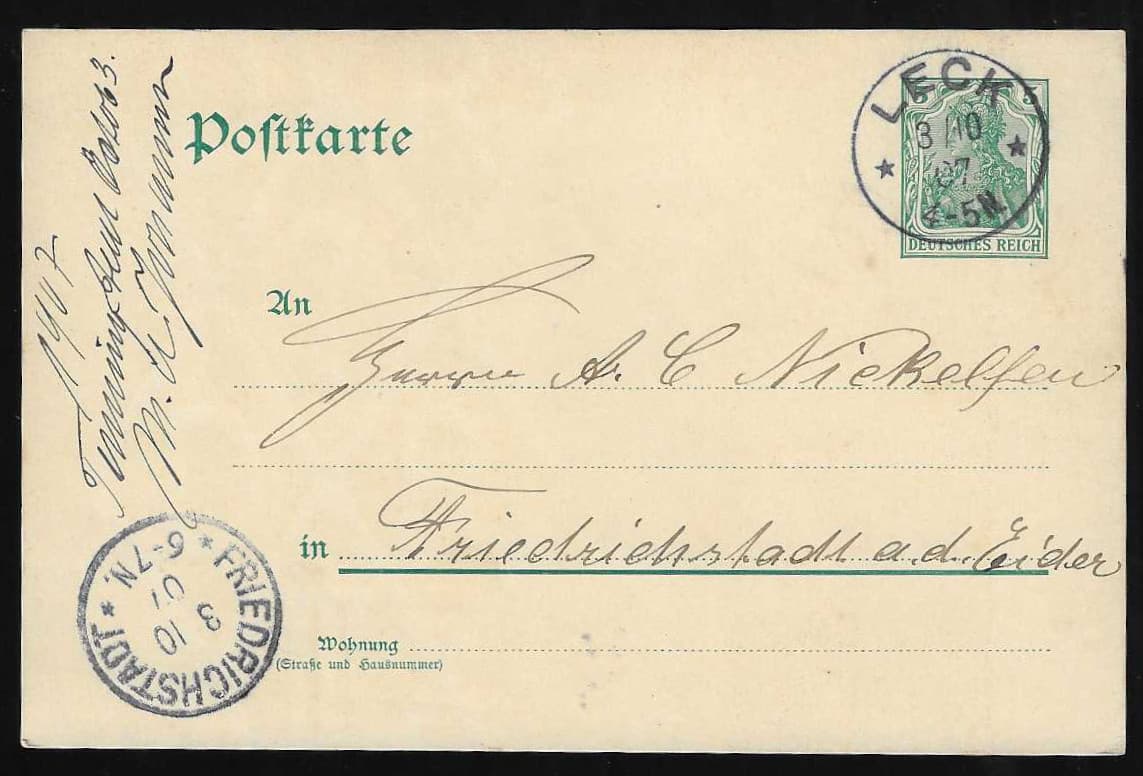 Postkarte
5 5
DEUTSCHES REICH
LECK
3 10
07
4-5N.
An
Herrn A. C Nickelsen
in Friedrichstadt a. d. Eider
Wohnung
(Straße und Hausnummer)
FRIEDRICHSTADT
3 10
07
6-7N.
1907
3.